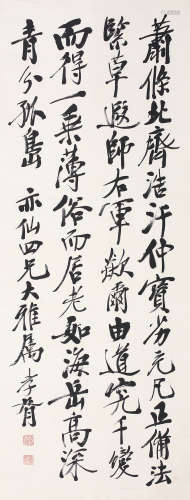 蕭條北齊浩汗仲寶劣充凡正備法
緊草遐師右軍欻爾由道究千變
而得一乘薄俗而居老如海岳高深
青分孤島 亦仙四兄大雅屬 孝胥